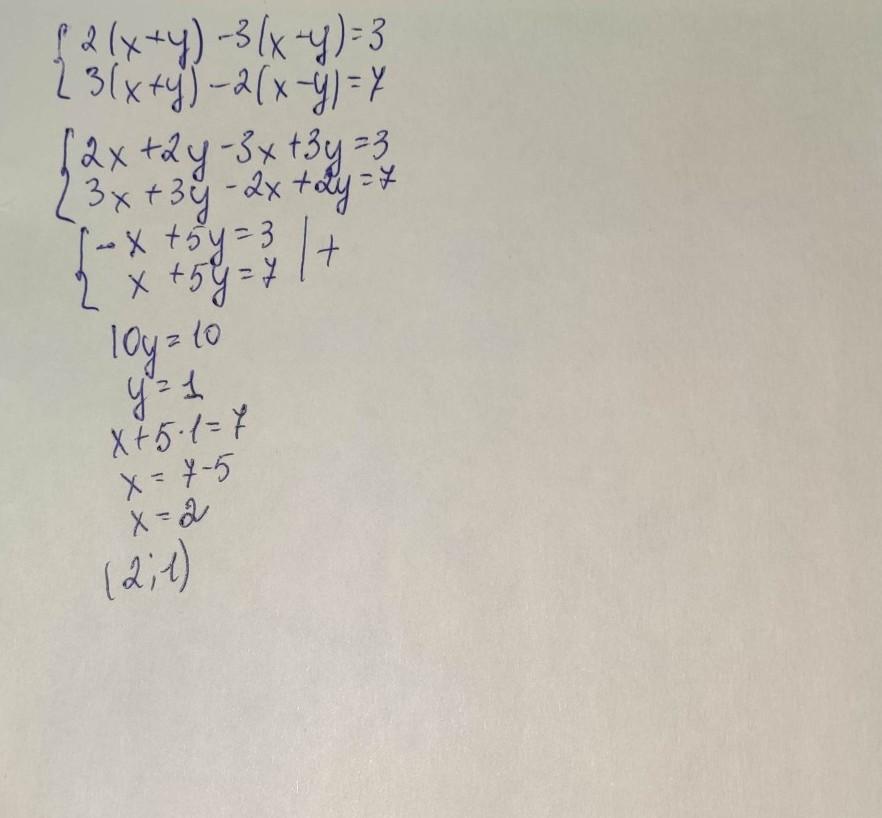 { 2(x+y) -3(x-y)=3
3(x+y) -2(x-y)=7
{ 2x +2y -3x +3y =3
3x +3y -2x +2y =7
{ -x +5y =3 | +
x +5y =7
10y = 10
y = 1
x+5·1=7
x = 7-5
x = 2
(2;1)